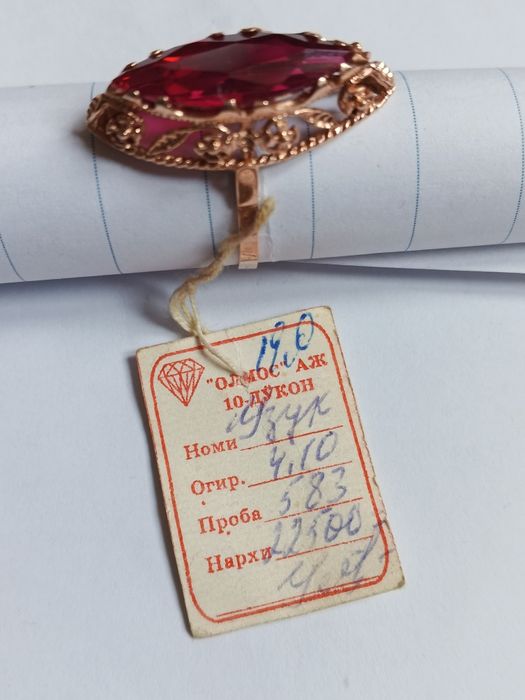 19,0
"ОЛМОС" АЖ
10-ДУКОН
Номи Узук
Огир. 4.10
Проба 583
Нархи 22500